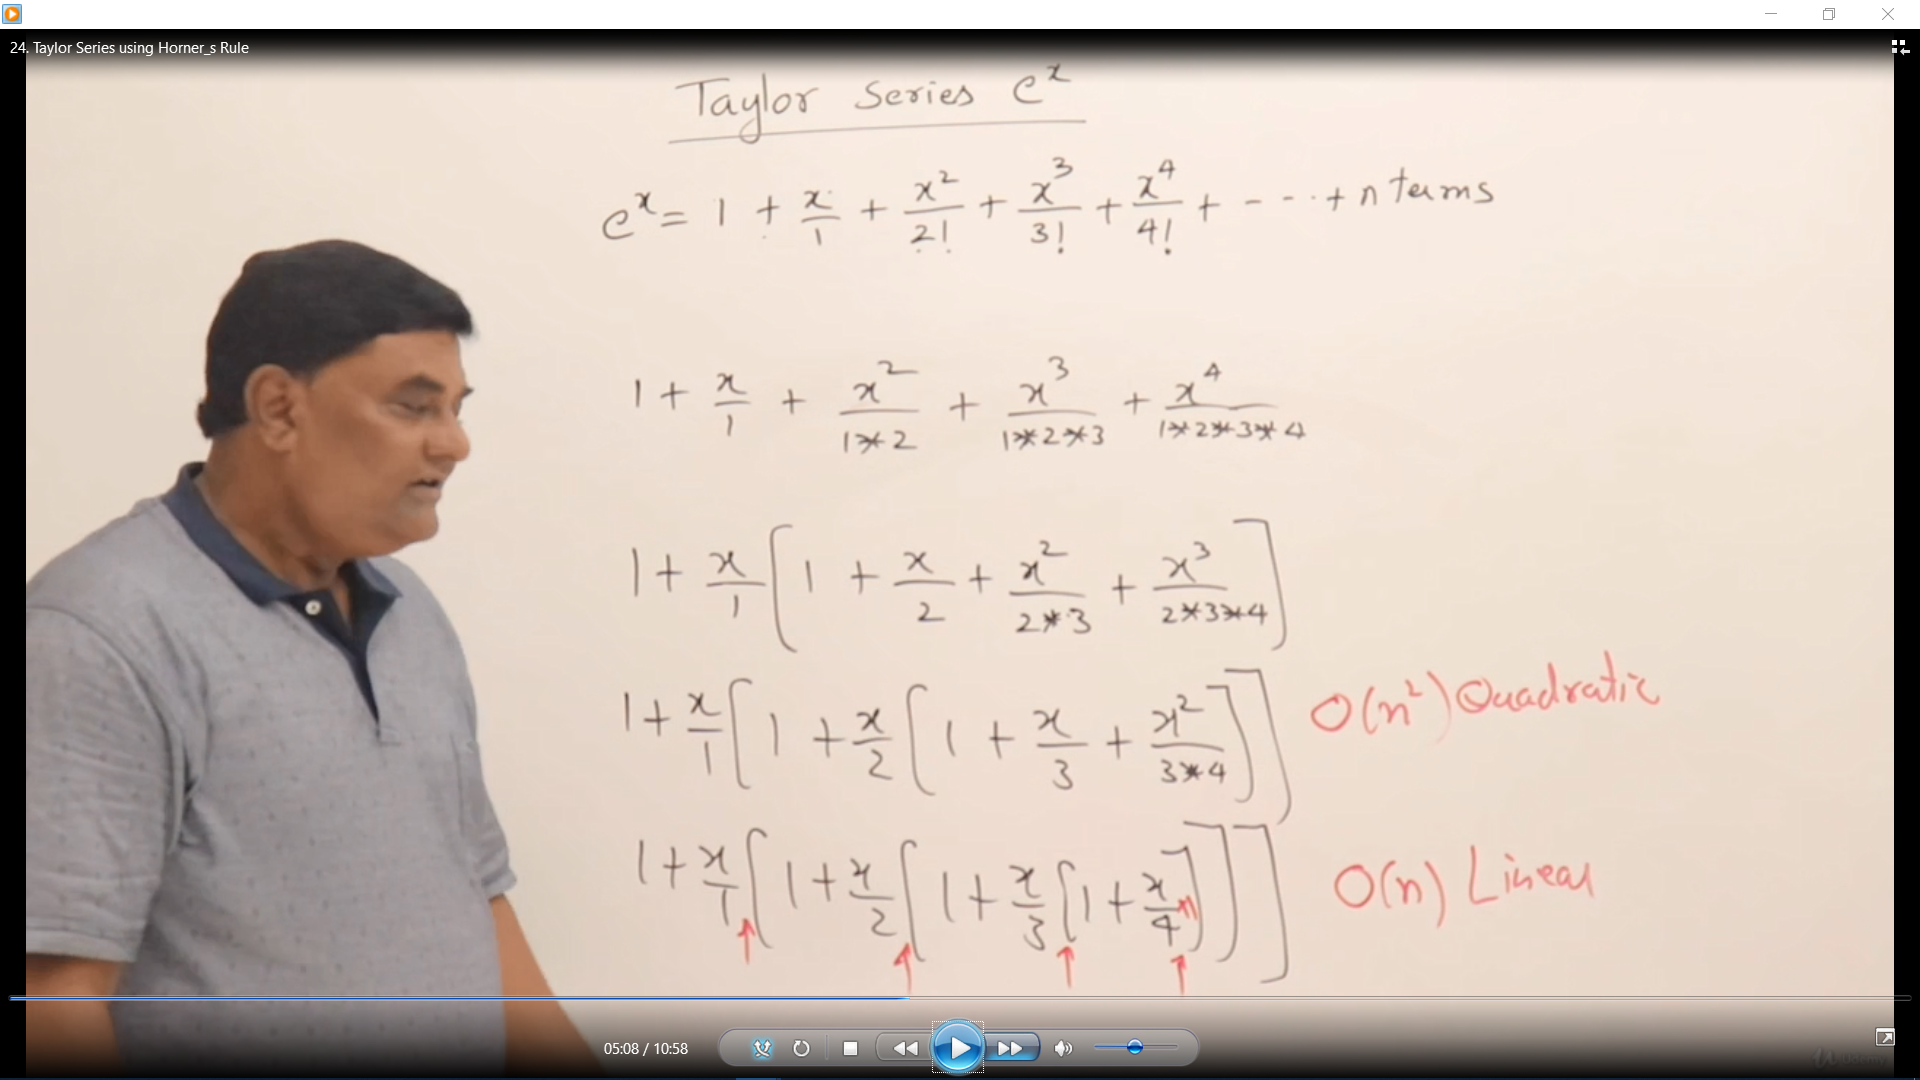 24. Taylor Series using Horner_s Rule
Taylor Series eˣ
eˣ = 1 + x/1 + x²/2! + x³/3! + x⁴/4! + - - - - + n terms
1 + x/1 + x²/1*2 + x³/1*2*3 + x⁴/1*2*3*4
1 + x/1 [ 1 + x/2 + x²/2*3 + x³/2*3*4 ]
1 + x/1 [ 1 + x/2 [ 1 + x/3 + x²/3*4 ] ]
O(n²) Quadratic
1 + x/1 [ 1 + x/2 [ 1 + x/3 [ 1 + x/4 ] ] ]
n
O(n) Linear
05:08 / 10:58
Udemy